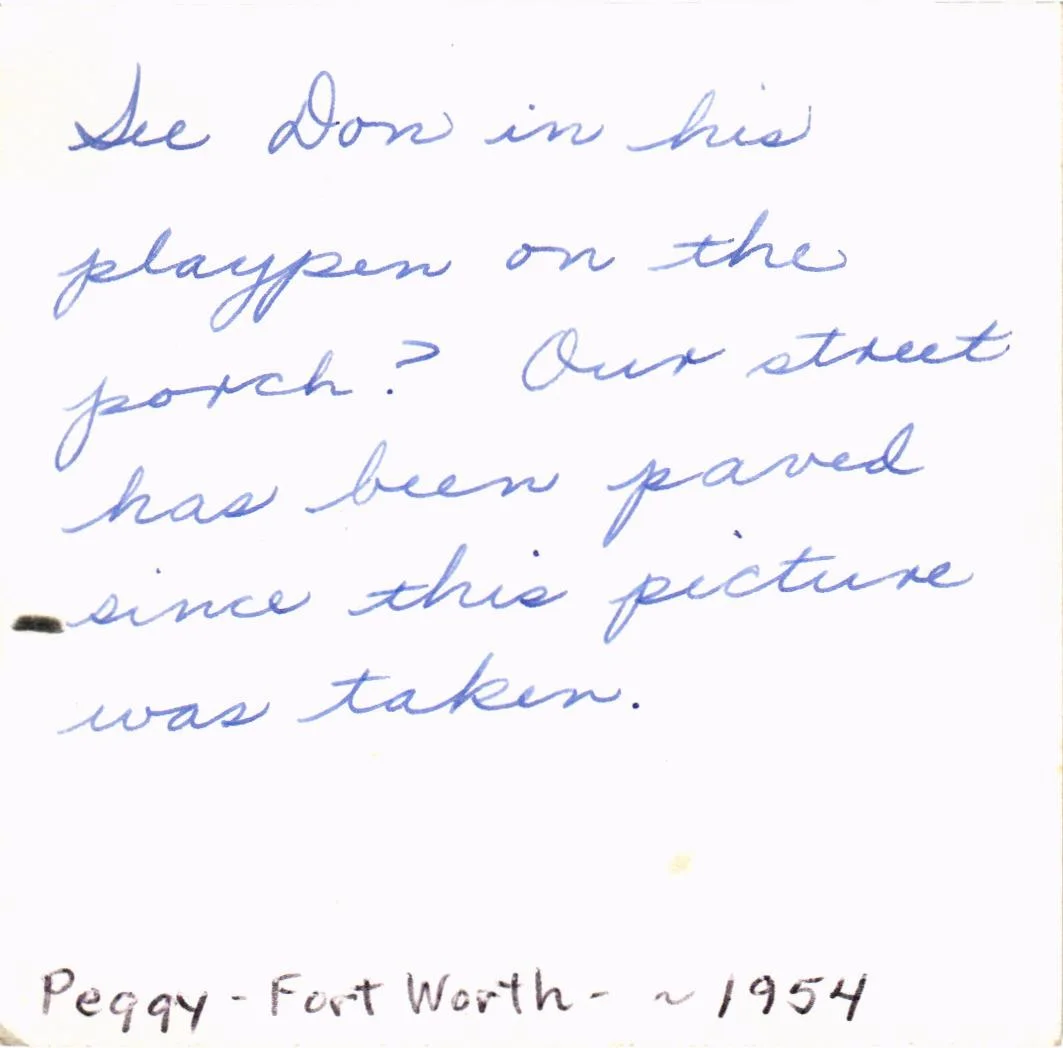 See Don in his
playpen on the
porch? Our street
has been paved
since this picture
was taken.
Peggy - Fort Worth - ~ 1954